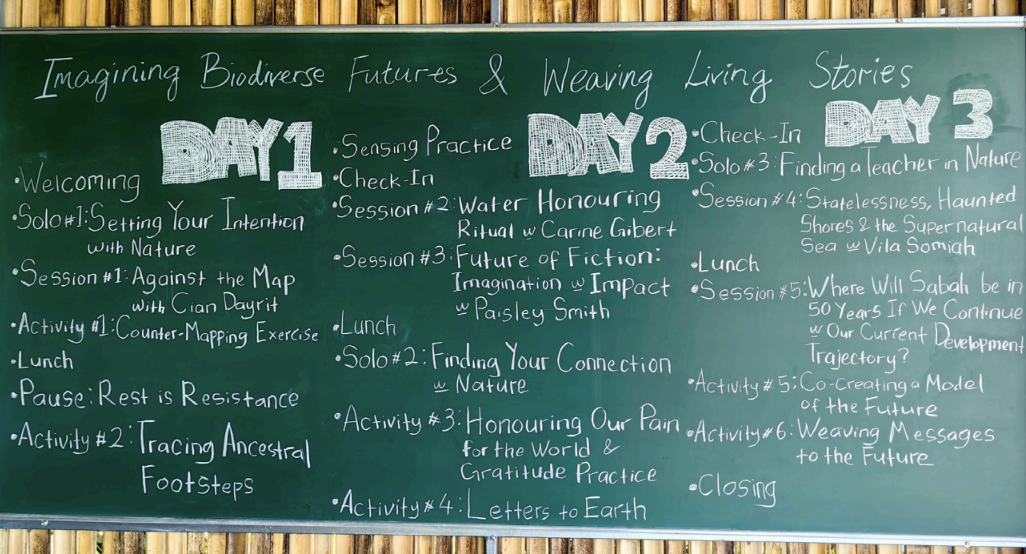 Imagining Biodiverse Futures & Weaving Living Stories
DAY 1
•Welcoming
•Solo#1: Setting Your Intention
with Nature
•Session #1: Against the Map
with Cian Dayrit
•Activity #1: Counter-Mapping Exercise
•Lunch
•Pause: Rest is Resistance
•Activity #2: Tracing Ancestral
Footsteps
DAY 2
•Sensing Practice
•Check-In
•Session #2: Water Honouring
Ritual w Carine Gibert
•Session #3: Future of Fiction:
Imagination w Impact
w Paisley Smith
•Lunch
•Solo #2: Finding Your Connection
w Nature
•Activity #3: Honouring Our Pain
for the World &
Gratitude Practice
•Activity #4: Letters to Earth
DAY 3
•Check-In
•Solo #3: Finding a Teacher in Nature
•Session #4: Statelessness, Haunted
Shores & the Supernatural
Sea w Vila Somiah
•Lunch
•Session #5: Where Will Sabah be in
50 Years If We Continue
w Our Current Development
Trajectory?
•Activity #5: Co-Creating a Model
of the Future
•Activity #6: Weaving Messages
to the Future
•Closing